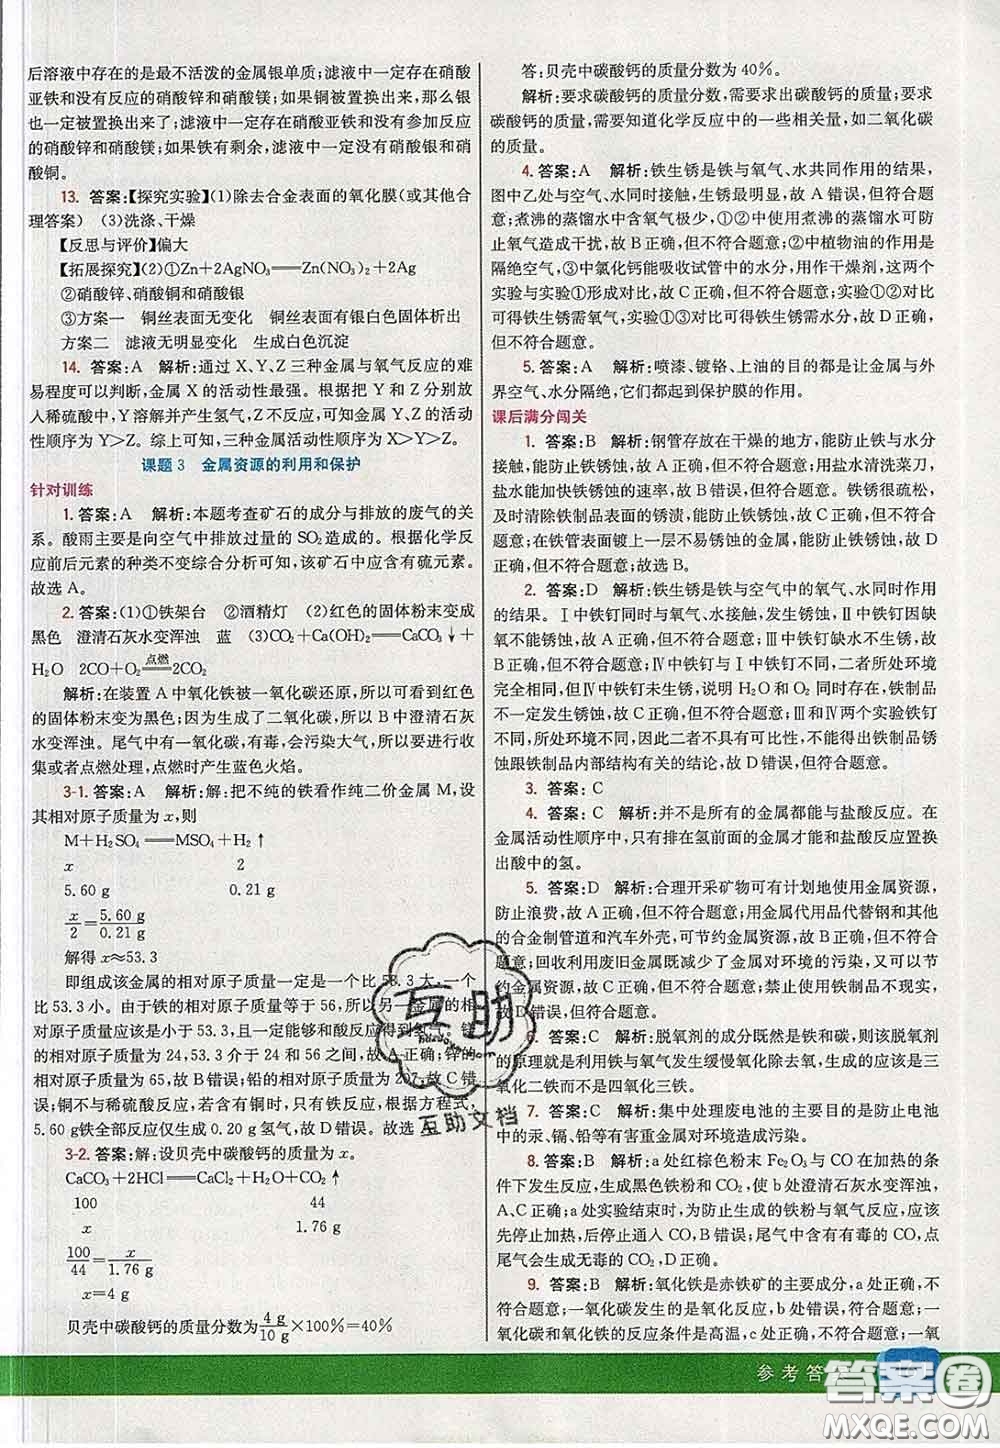 后溶液中存在的是最不活泼的金属银单质；滤液一定存在硝酸
亚铁和没有反应的硝酸锌和硝酸镁；如果铜被置换出来，那么银
也一定被置换出来了；滤液一定存在硝酸亚铁和没有参加反应
的硝酸锌和硝酸镁；如果铁有剩余，滤液一定没有硝酸银和硝
酸铜。
13. 答案：【探究实验】(1)除去合金表面的氧化膜(或其他合
理答案) (3)洗涤、干燥
【反思与评价】偏大
【拓展探究】(2)①Zn+2AgNO₃══Zn(NO₃)₂+2Ag
②硝酸锌、硝酸铜和硝酸银
③方案一 铜丝表面无变化 铜丝表面有银白色固体析出
方案二 滤液无明显变化 生成白色沉淀
14. 答案：A 解析：通过 X、Y、Z 三种金属与氧气反应的难
易程度可以判断，金属 X 的活动性最强。根据把 Y 和 Z 分别放
入稀硫酸中，Y 溶解并产生氢气，Z 不反应，可知金属 Y、Z 的活动
性顺序为 Y>Z。综上可知，三种金属活动性顺序为 X>Y>Z。
课题 3 金属资源的利用和保护
针对训练
1. 答案：A 解析：本题考查矿石的成分与排放的废气的关
系。酸雨主要是向空气中排放过量的 SO₂ 造成的。根据化学反
应前后元素的种类不变综合分析可知，该矿石中应含有硫元素。
故选 A。
2. 答案：(1)①铁架台 ②酒精灯 (2)红色的固体粉末变成
黑色 澄清石灰水变浑浊 蓝 (3)CO₂+Ca(OH)₂══CaCO₃↓+
H₂O 2CO+O₂══点燃══2CO₂
解析：在装置 A 中氧化铁被一氧化碳还原，所以可看到红色
的固体粉末变为黑色；因为生成了二氧化碳，所以 B 中澄清石灰
水变浑浊。尾气中有一氧化碳，有毒，会污染大气，所以要进行收
集或者点燃处理，点燃时产生蓝色火焰。
3-1. 答案：A 解析：解：把不纯的铁看作纯二价金属 M，设
其相对原子质量为 x，则
M+H₂SO₄══MSO₄+H₂↑
x 2
5.60 g 0.21 g
x/2=5.60 g/0.21 g
解得 x≈53.3
即组成该金属的相对原子质量一定是一个比 53.3 大，一个
比 53.3 小。由于铁的相对原子质量等于 56，所以另一金属的相
对原子质量应该是小于 53.3，且一定能够和酸反应得到氢气。镁
的相对原子质量为 24，53.3 介于 24 和 56 之间，故 A 正确；锌的相
对原子质量为 65，故 B 错误；铅的相对原子质量为 207，故 C 错
误；铜不与稀硫酸反应，若含有铜时，只有铁反应，根据方程式，
5.60 g铁全部反应仅生成 0.20 g 氢气，故 D 错误。故选 A。
3-2. 答案：解：设贝壳中碳酸钙的质量为 x。
CaCO₃+2HCl══CaCl₂+H₂O+CO₂↑
100 44
x 1.76 g
100/44=x/1.76 g
x=4 g
贝壳中碳酸钙的质量分数为 4 g/10 g×100%=40%
答：贝壳中碳酸钙的质量分数为 40%。
解析：要求碳酸钙的质量分数，需要求出碳酸钙的质量；要求
碳酸钙的质量，需要知道化学反应中的一些相关量，如二氧化碳
的质量。
4. 答案：A 解析：铁生锈是铁与氧气、水共同作用的结果，
图中乙处与空气、水同时接触，生锈最明显，故 A 错误，但符合题
意；煮沸的蒸馏水中含氧气极少，①②中使用煮沸的蒸馏水可防
止氧气造成干扰，故 B 正确，但不符合题意；②中植物油的作用是
隔绝空气，③中氯化钙能吸收试管中的水分，用作干燥剂，这两个
实验与实验①形成对比，故 C 正确，但不符合题意；实验①②对比
可得铁生锈需氧气，实验①③对比可得铁生锈需水分，故 D 正确，
但不符合题意。
5. 答案：A 解析：喷漆、镀铬、上油的目的都是让金属与外
界空气、水分隔绝，它们都起到保护膜的作用。
课后满分闯关
1. 答案：B 解析：钢管存放在干燥的地方，能防止铁与水分
接触，能防止铁锈蚀，故 A 正确，但不符合题意。用盐水清洗菜刀，
盐水能加快铁锈蚀的速率，故 B 错误，但符合题意。铁锈很疏松，
及时清除铁制品表面的锈渍，能防止铁锈蚀，故 C 正确，但不符合题
意。在铁管表面镀上一层不易锈蚀的金属，能防止铁锈蚀，故 D
正确，但不符合题意。故选 B。
2. 答案：D 解析：铁生锈是铁与空气中的氧气、水同时作用
的结果。Ⅰ中铁钉同时与氧气、水接触，发生锈蚀，Ⅱ中铁钉因缺
氧气不能锈蚀，故 A 正确，但不符合题意；Ⅲ中铁钉表面有锌保
护，不发生锈蚀，而Ⅳ中铁钉未发生锈蚀，说明锌能保护铁，故 B
正确，但不符合题意；Ⅳ中铁钉与Ⅰ中铁钉不同，二者所处环境
完全相同，但Ⅳ中铁钉未生锈，说明 H₂O 和 O₂ 存在时，铁制品
不一定发生锈蚀，故 C 正确，但不符合题意；Ⅲ和Ⅳ两个实验铁钉
不同，所处环境不同，因此二者不具有可比性，不能得出铁制品锈
蚀跟铁制品内部结构有关的结论，故 D 错误，但符合题意。
3. 答案：C
4. 答案：C 解析：并不是所有的金属都能与盐酸反应。在
金属活动性顺序中，只有排在氢前面的金属才能和盐酸反应置换
出酸中的氢。
5. 答案：D 解析：合理开采矿物可有计划地使用金属资源，
防止浪费，故 A 正确，但不符合题意；用金属代用品代替钢和其他
的合金制管道和汽车外壳，可节约金属资源，故 B 正确，但不符合
题意；回收利用废旧金属既减少了金属对环境的污染，又可节
约金属资源，故 C 正确，但不符合题意；禁止使用铁制品不现实，
故 D 错误，但符合题意。
6. 答案：C 解析：脱氧剂的成分既然是铁和碳，则该脱氧剂
的原理就是利用铁与氧气发生缓慢氧化除去氧，生成的应该是三
氧化二铁而不是四氧化三铁。
7. 答案：C 解析：集中处理废电池的主要目的是防止电池
中的汞、镉、铅等有害重金属对环境造成污染。
8. 答案：B 解析：a 处红棕色粉末 Fe₂O₃ 与 CO在加热的条
件下发生反应，生成黑色铁粉和 CO₂，使 b 处澄清石灰水变浑浊，
A、C正确；实验结束时，为防止生成的铁粉与氧气反应，应该
先停止加热，后停止通入 CO，B 错误；尾气中有有毒的 CO，点燃
尾气会生成无毒的 CO₂，D 正确。
9. 答案：B 解析：氧化铁是赤铁矿的主要成分，a 处正确，不
符合题意；一氧化碳发生的是氧化反应，b 处错误，符合题意；一
氧化碳和氧化铁的反应条件是高温，c 处正确，不符合题意；一氧
参考答案
互助
互助文档
答案圈
MXQE.COM